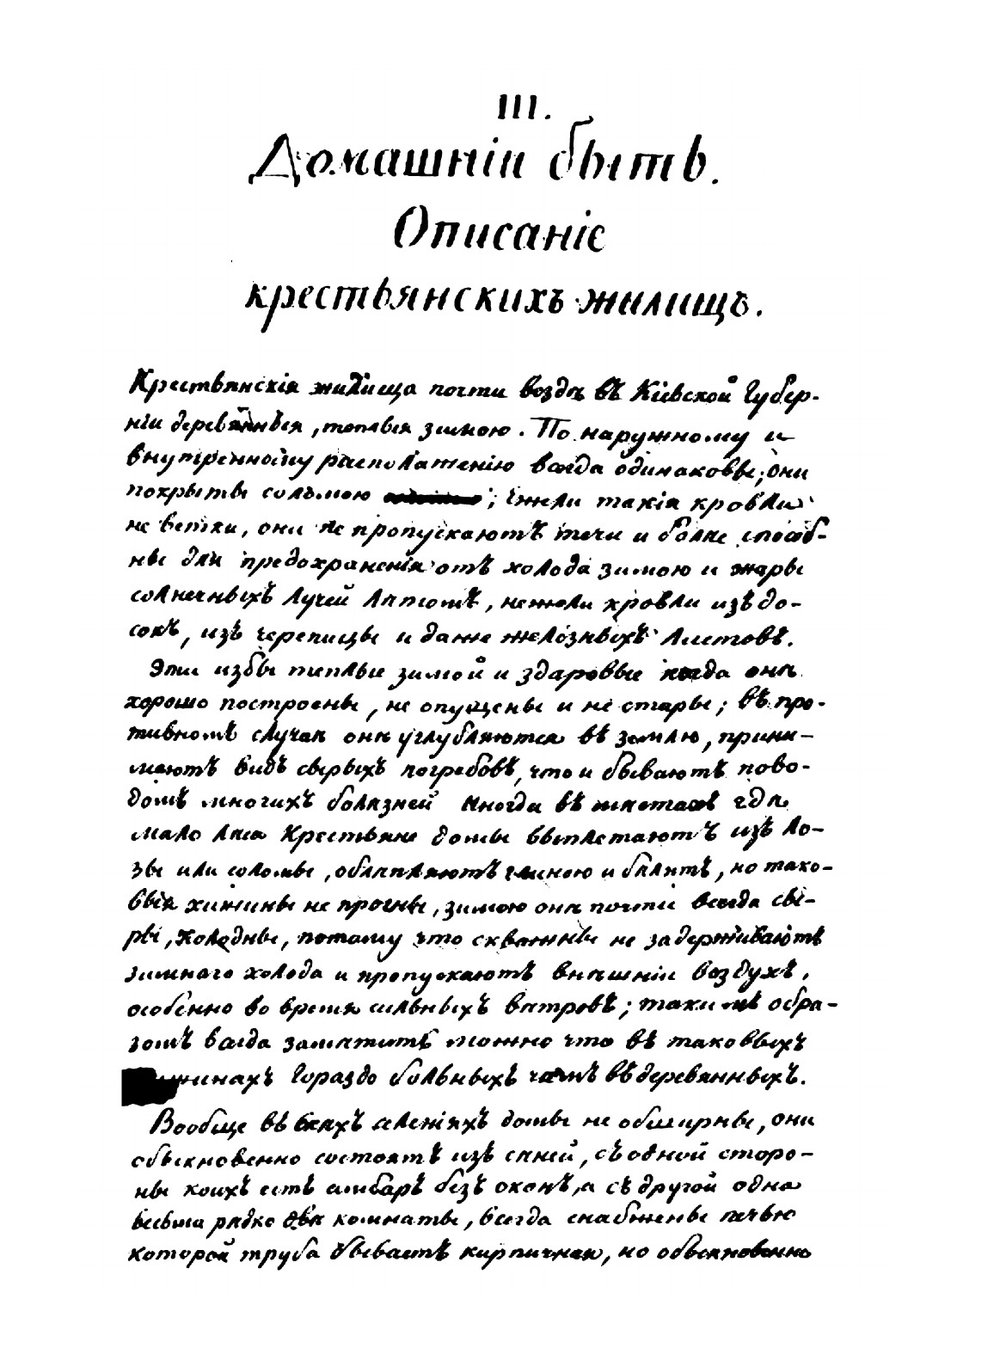 III.
Домашніи бытъ.
Описаніе
крестьянскихъ жилищъ.
Крестьянскія жилища почти вездѣ въ Кіевской Губер-
ніи деревянныя, теплыя зимою. По наружному и
внутреннему расположенію всегда одинаковы; они
покрыты соломою ; ежели такія кровли
не ветхи, они не пропускаютъ течи и болѣе способ-
ны для предохраненія отъ холода зимою и жары
солнечныхъ лучей лѣтомъ, нежели кровли изъ до-
сокъ, изъ черепицы и даже желѣзныхъ листовъ.
Эти избы теплы зимой и здоровы когда онѣ
хорошо построены, не опущены и не стары; въ про-
тивномъ случаѣ онѣ углубляются въ землю, прини-
маютъ видъ сырыхъ погребовъ, что и бываютъ пово-
домъ многихъ болѣзней Иногда въ мѣстахъ гдѣ
мало лѣса Крестьяне домы выплетаютъ изъ ло-
зы или соломы, облѣпляютъ глиною и бѣлятъ, но тако-
выя хижины не прочны, зимою онѣ почти всегда сы-
ры, холодны, потому что скважины не задерживаютъ
зимняго холода и пропускаютъ внѣшніи воздухъ,
особенно во время сильныхъ вѣтровъ; такимъ обра-
зомъ всегда замѣтить можно что въ таковыхъ
хижинахъ гораздо больныхъ чѣмъ въ деревянныхъ.
Вообще въ всѣхъ селеніяхъ домы не обширны, они
обыкновенно состоятъ изъ сѣней, съ одной сторо-
ны коихъ есть амбаръ безъ оконъ, а съ другой одна
весьма рѣдко двѣ комнаты, всегда снабжены печью
которой труба бываетъ кирпичная, но обыкновенно